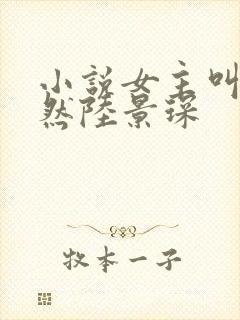 小說女主叫
然陸景琛
牧本一子